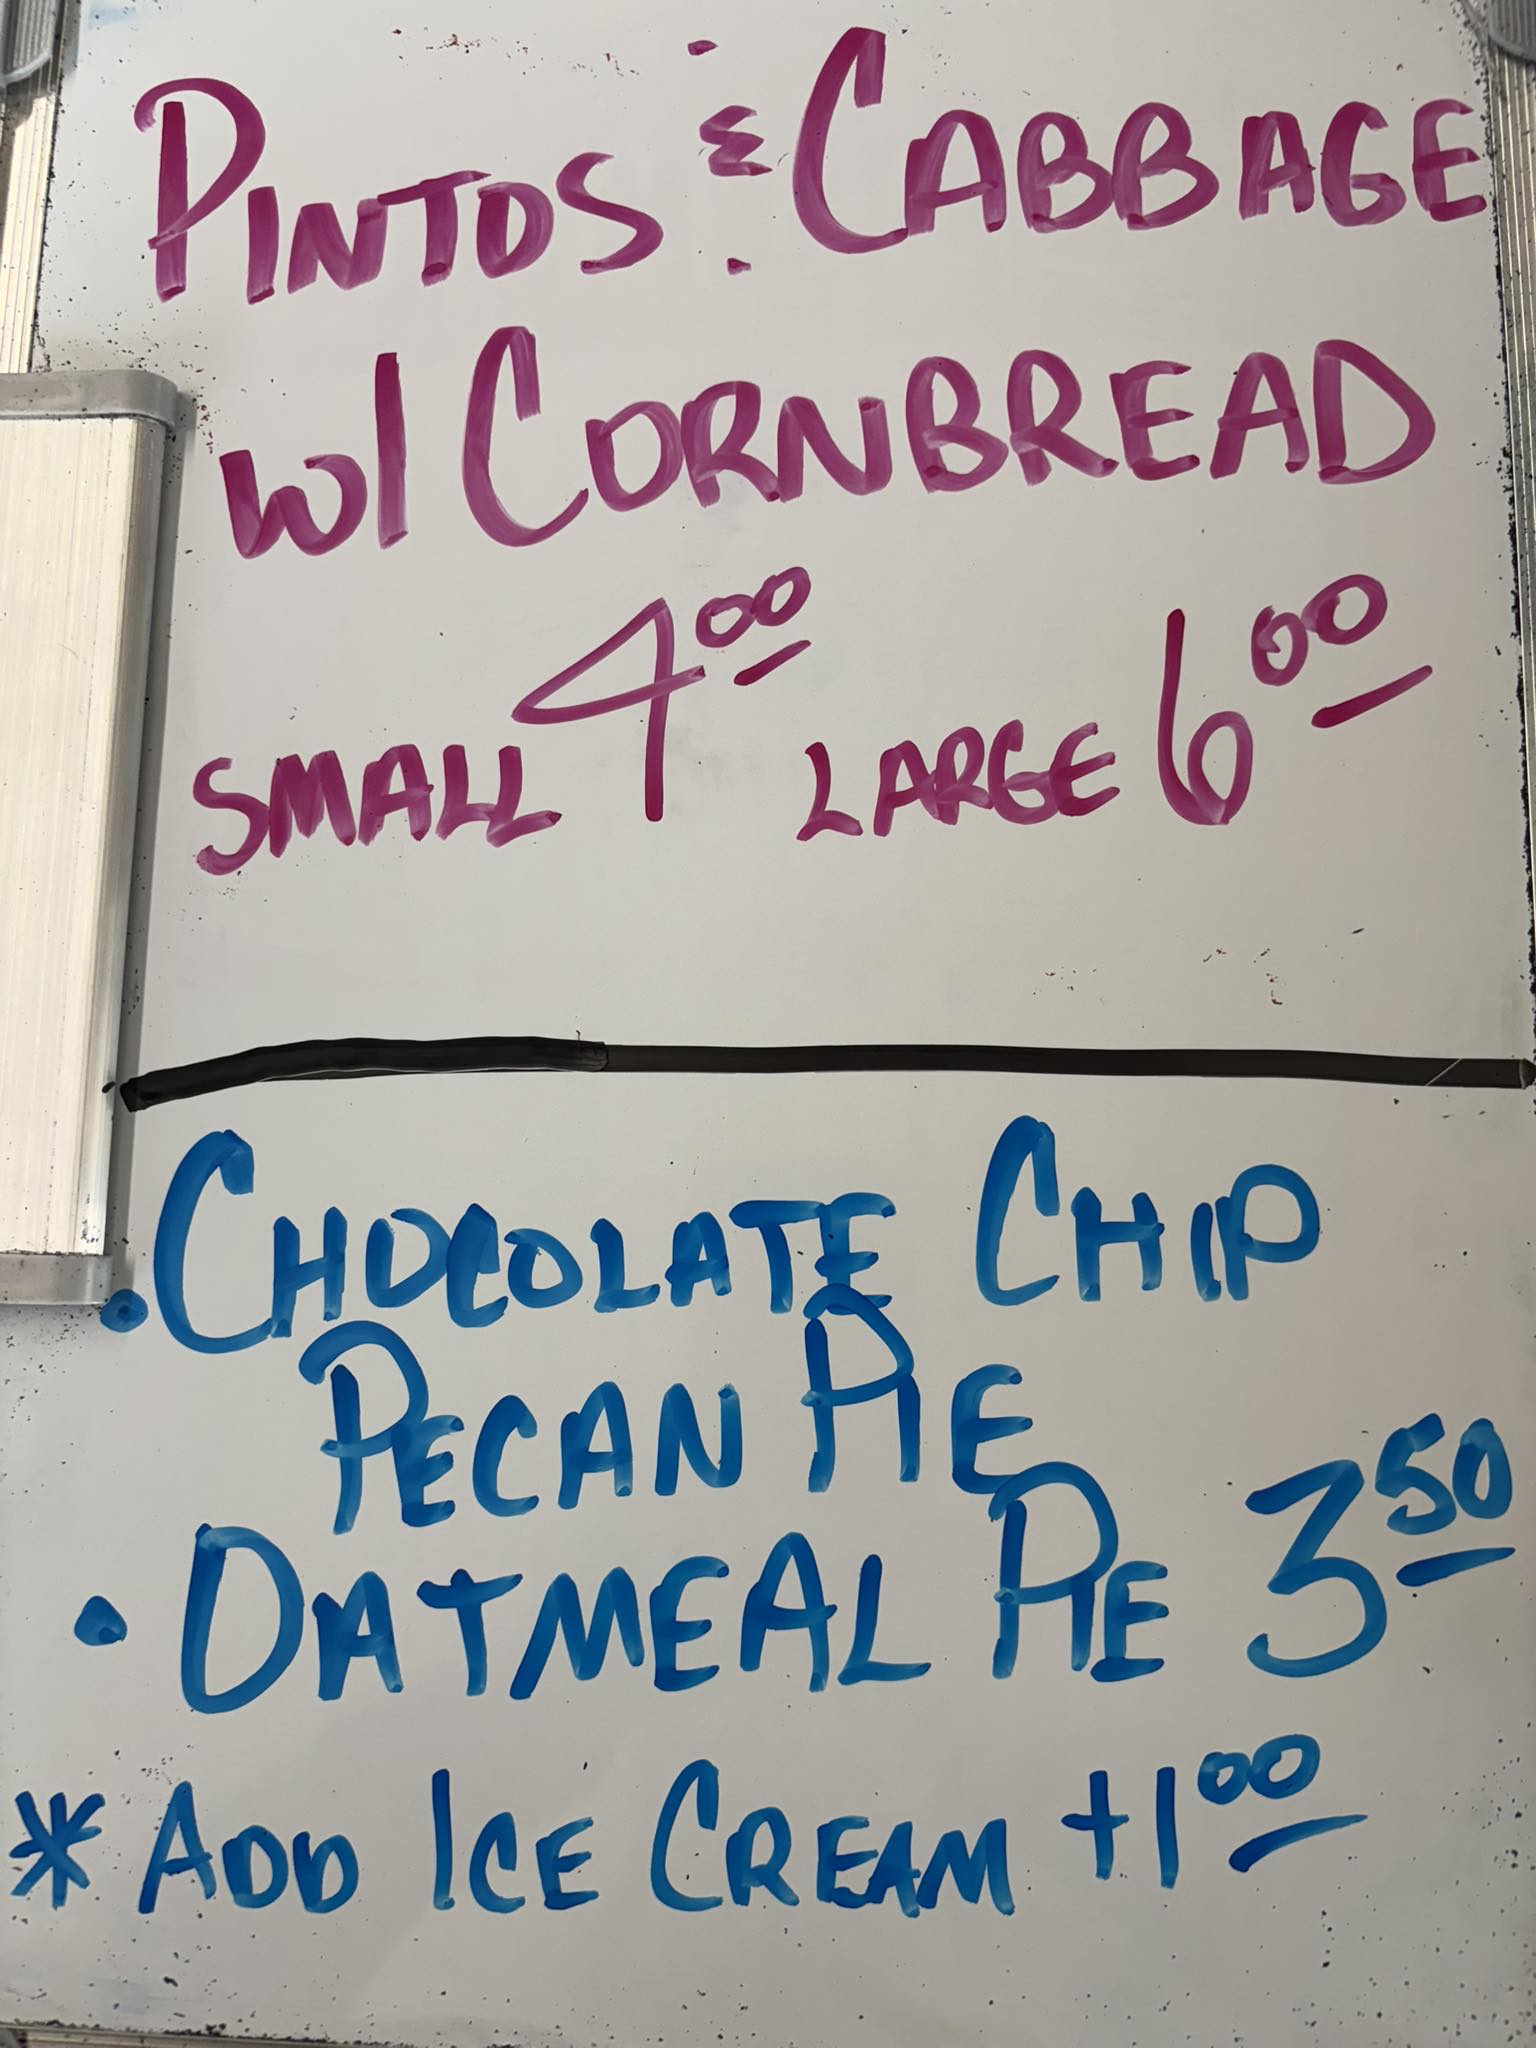 PINTOS & CABBAGE
W/ CORNBREAD
SMALL 4.00 LARGE 6.00
• CHOCOLATE CHIP
PECAN PIE
• OATMEAL PIE 3.50
* ADD ICE CREAM +1.00